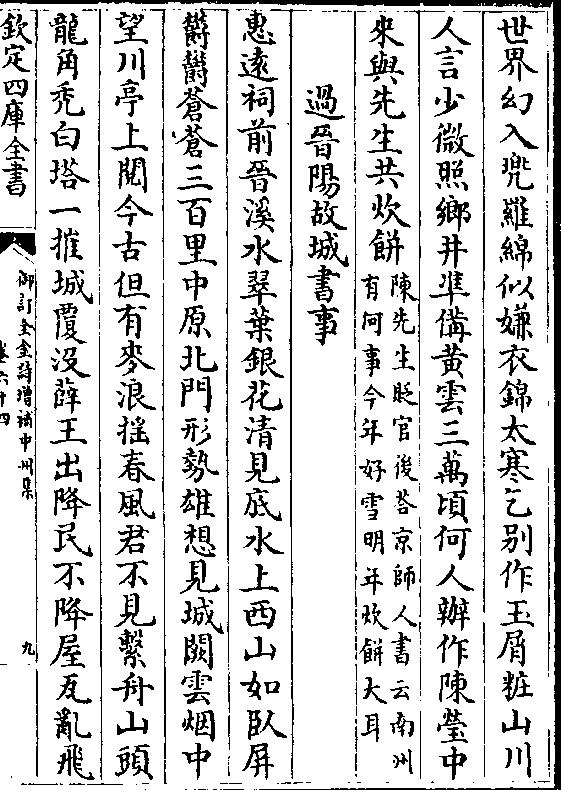 世界幻入兠羅綿似嫌衣錦太寒乞别作玉屑粧山川
人言少微照鄉井準備黄雲三萬頃何人辦作陳瑩中
來與先生共炊餅陳先生貶官後荅京師人書云南州
有何事今年好雪明年炊餅大耳
過晉陽故城書事
惠逺祠前晉溪水翠葉銀花清見底水上西山如臥屏
鬱鬱蒼蒼三百里中原北門形勢雄想見城闕雲烟中
望川亭上閲今古但有麥浪揺春風君不見繫舟山頭
龍角秃白塔一摧城覆没薛王出降民不降屋瓦亂飛
欽定四庫全書
御訂全金詩增補中州集
卷六十四
九